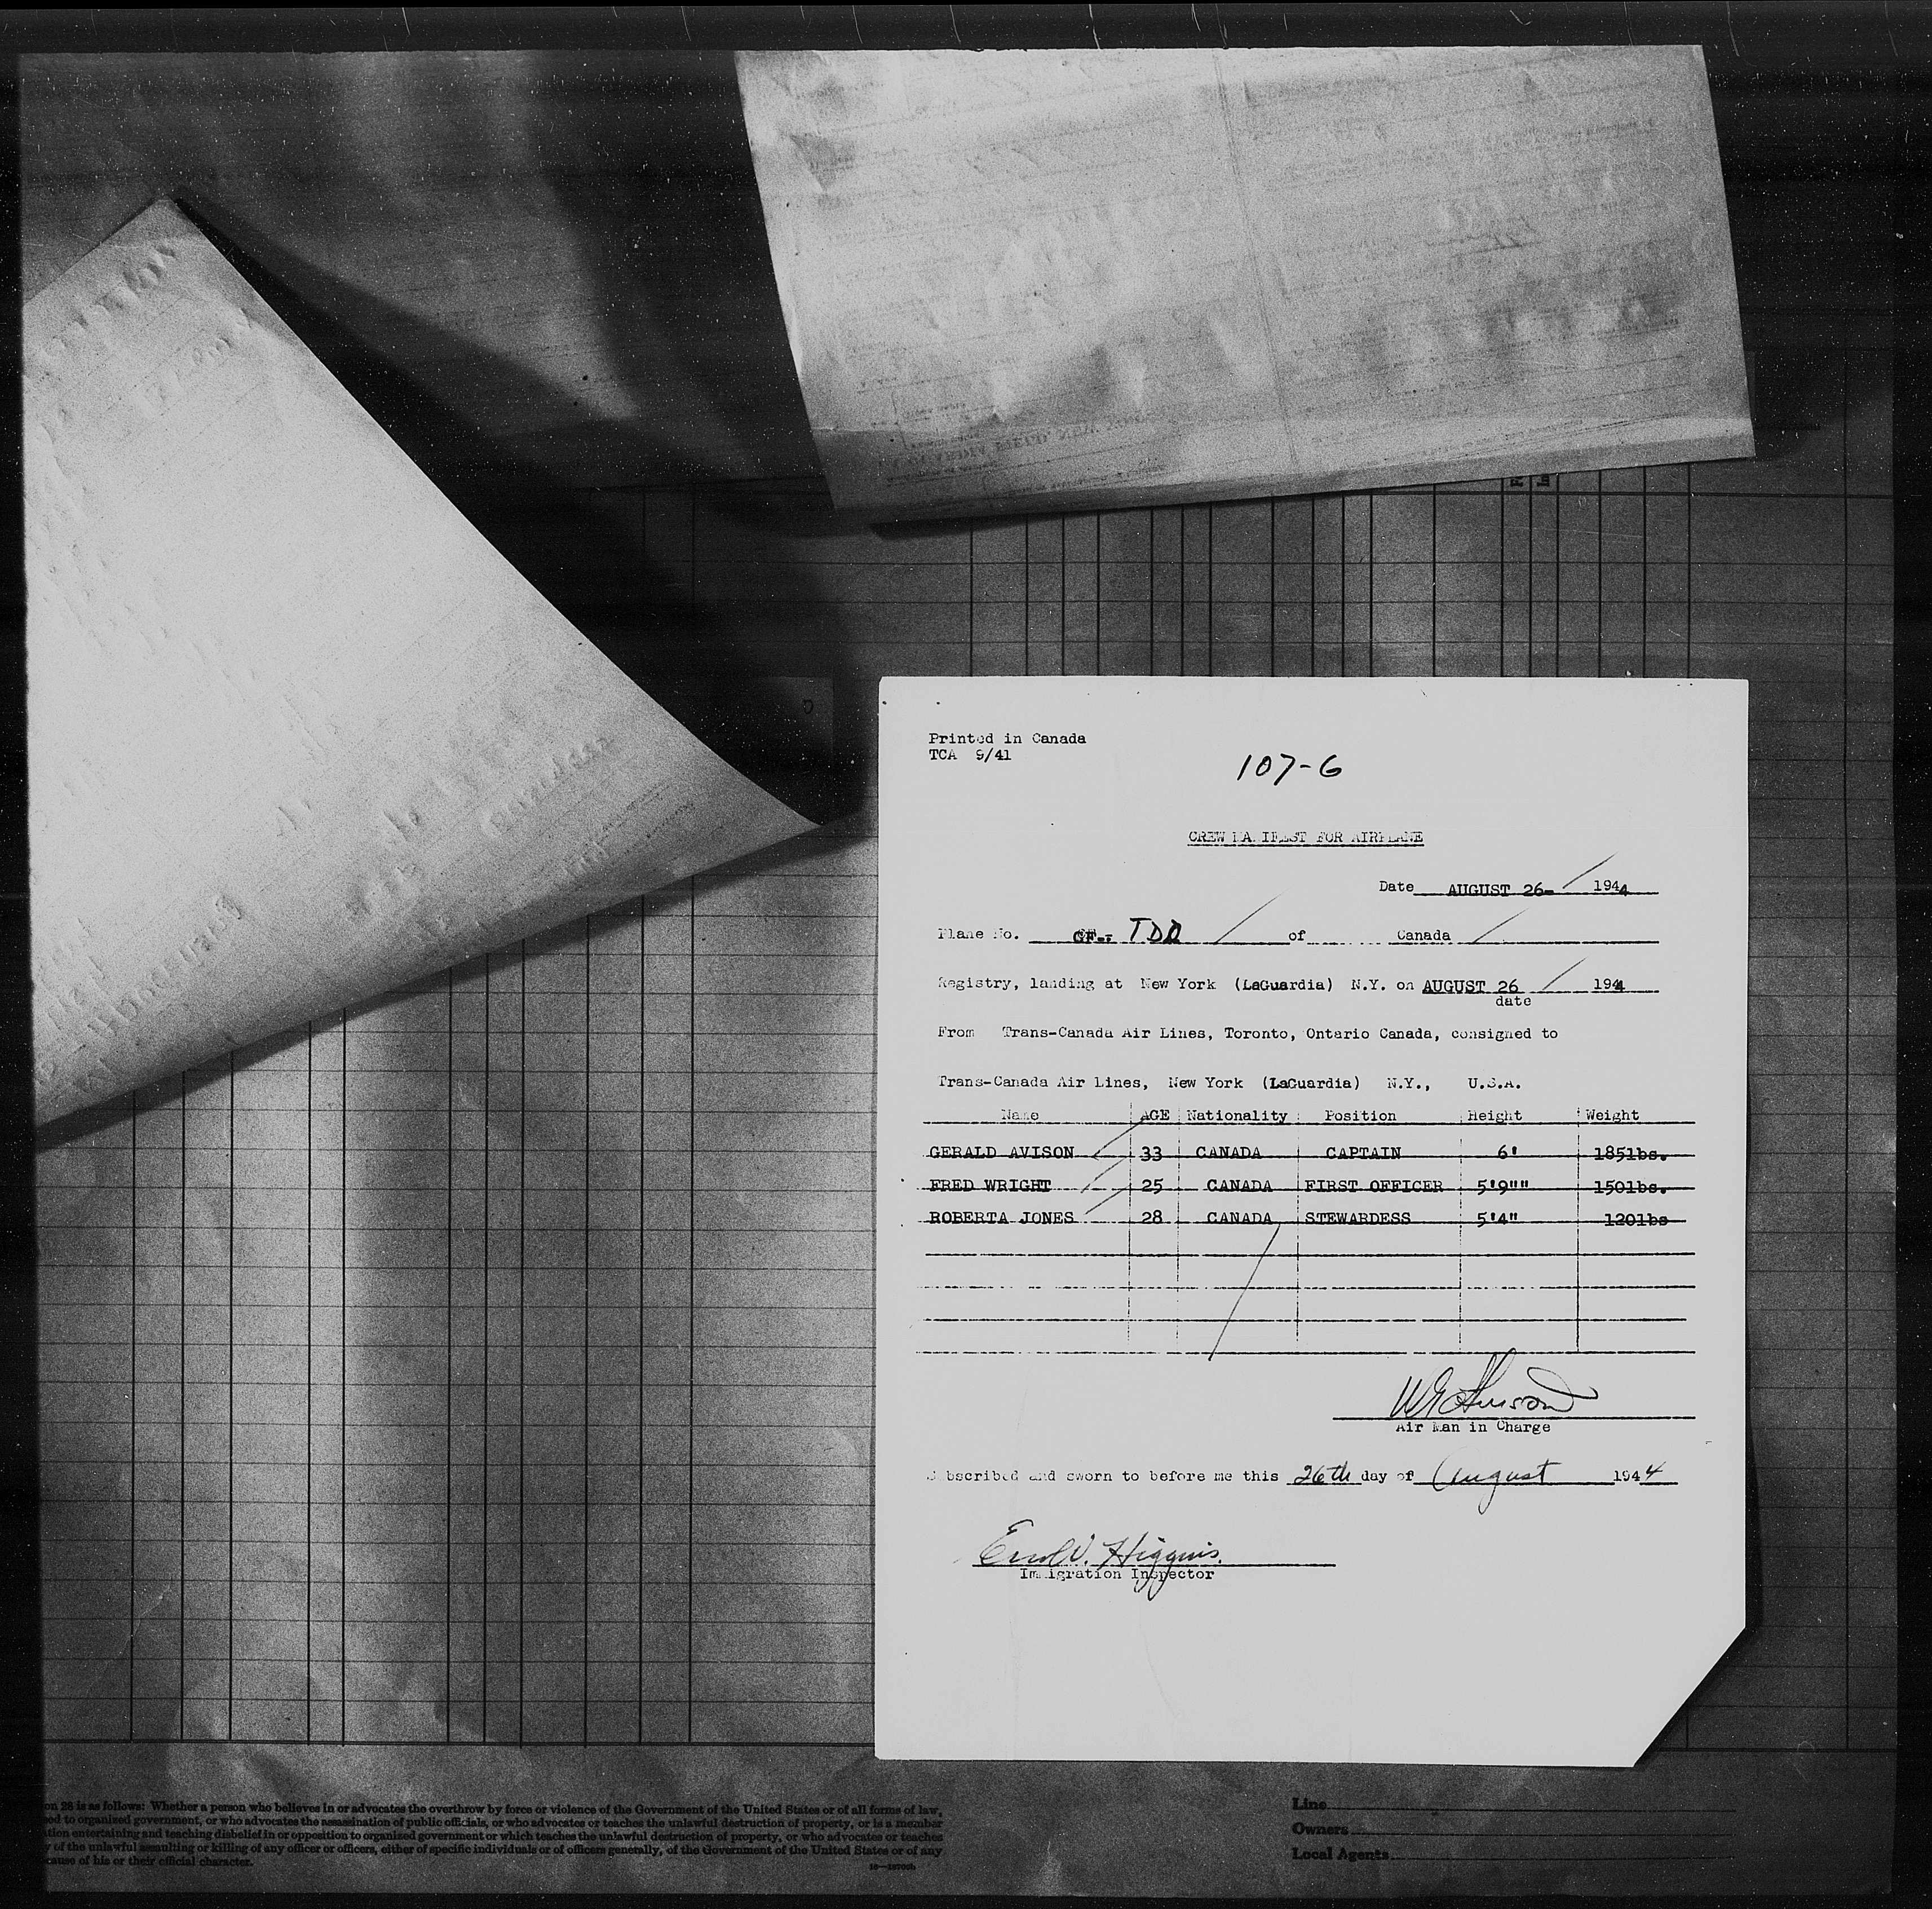 Printed in Canada
TCA 9/41
107-6
CREW MANIFEST FOR AIRPLANE
Date AUGUST 26- 1944
Plane No. CF-: TDD of Canada
Registry, landing at New York (LaGuardia) N.Y. on AUGUST 26 1944
date
From Trans-Canada Air Lines, Toronto, Ontario Canada, consigned to
Trans-Canada Air Lines, New York (LaGuardia) N.Y., U.S.A.
Name AGE Nationality Position Height Weight
GERALD AVISON 33 CANADA CAPTAIN 6' 185lbs.
FRED WRIGHT 25 CANADA FIRST OFFICER 5'9"" 150lbs.
ROBERTA JONES 28 CANADA STEWARDESS 5'4" 120lbs
Air Man in Charge
Subscribed and sworn to before me this 26th day of August 1944
Higgins.
Immigration Inspector
on 28 is as follows: Whether a person who believes in or advocates the overthrow by force or violence of the Government of the United States or of all forms of law,
sed to organized government, or who advocates the assassination of public officials, or who advocates or teaches the unlawful destruction of property, or is a member
ation entertaining and teaching disbelief in or opposition to organized government or which teaches the unlawful destruction of property, or who advocates or teaches
y of the unlawful assaulting or killing of any officer or officers, either of specific individuals or of officers generally, of the Government of the United States or of any
cause of his or their official character.
Line
Owners
Local Agents